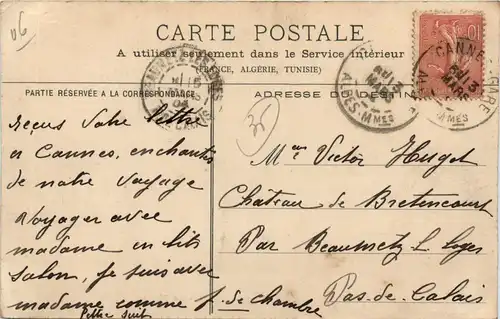 06
CARTE POSTALE
A utiliser seulement dans le Service intérieur
(FRANCE, ALGÉRIE, TUNISIE)
PARTIE RÉSERVÉE A LA CORRESPONDANCE
ADRESSE DU DEST
CANNES-GARE
MARS
ALPES-MMES
10
35
recus votre lettre
en Cannes, enchantes
de notre voyage
Voyager avec
madame en lits
salon, je suis avec
madame comme f. de chambre
lettre suit
Victor Huget
Château de Bretencourt
Par Beaumetz L. Loges
Pas-de-Calais